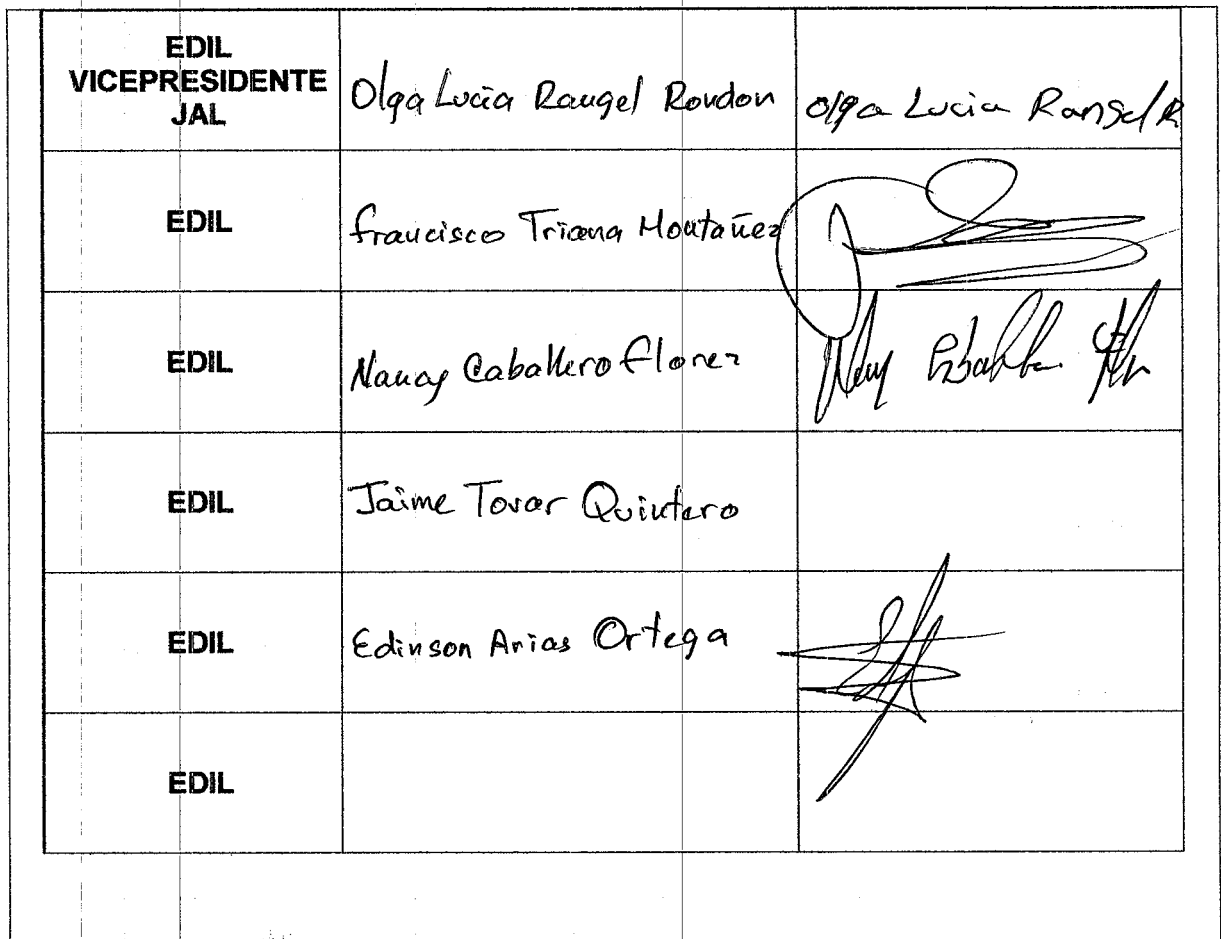 EDIL
VICEPRESIDENTE
JAL
Olga Lucia Rangel Rondon
Olga Lucia Rangel R.
EDIL
Francisco Triana Montañez
EDIL
Nancy Caballero Florez
EDIL
Jaime Tovar Quintero
EDIL
Edinson Arias Ortega
EDIL